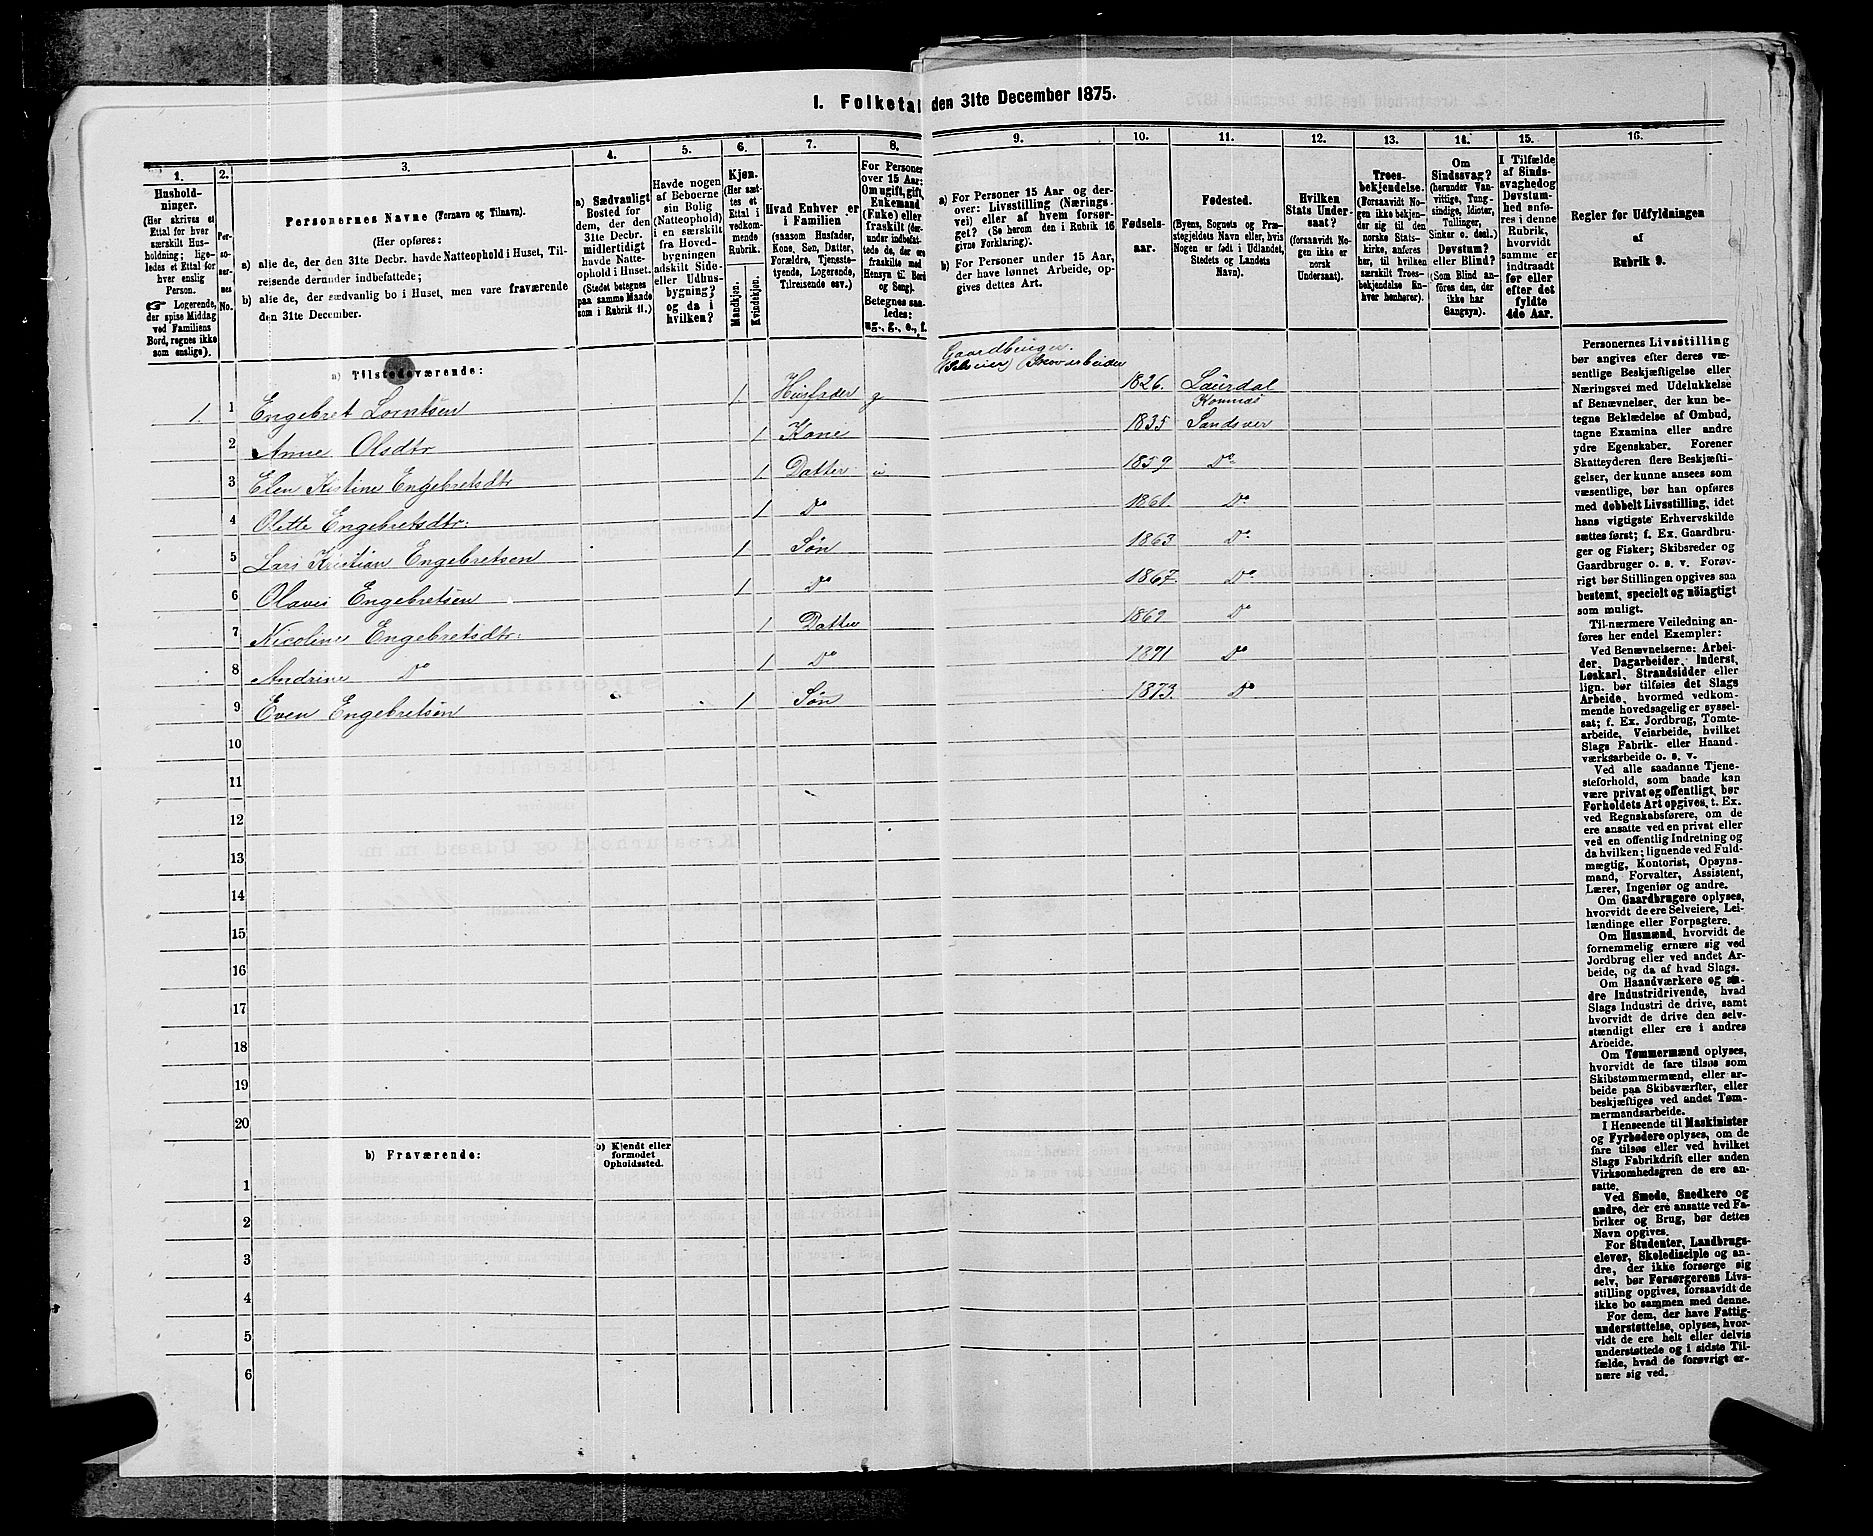 I. Folketal den 31te December 1875.
1.
2.
3.
4.
5.
6.
7.
8.
9.
10.
11.
12.
13.
14.
15.
16.
Hushold-
ninger.
(Her skrives et
Ettal for hver
særskilt Hus-
holdning; lige-
ledes et Ettal for
hver enslig
Person.
☞ Logerende,
der spise Middag
ved Familiens
Bord, regnes ikke
som enslige).
Per-
so-
ner-
nes
No.
Personernes Navne (Fornavn og Tilnavn).
(Her opføres:
a) alle de, der den 31te Decbr. havde Natteophold i Huset, Til-
reisende derunder indbefattede;
b) alle de, der sædvanlig bo i Huset, men vare fraværende
den 31te December.
a) Sædvanligt
Bosted for
dem, der den
31te Decbr.
midlertidigt
havde Natte-
ophold i Huset.
(Stedet betegnes
paa samme Maade
som i Rubrik 11.)
Havde nogen
af Beboerne
sin Bolig
(Natteophold)
i en særskilt
fra Hoved-
bygningen
adskilt Side-
eller Udhus-
bygning?
og da i
hvilken?
Kjøn.
(Her sæt-
tes et
Ettal i
vedkom-
mende
Rubrik.
Mandkjøn.
Kvindekjøn.
Hvad Enhver er
i Familien
(saasom Husfader,
Kone, Søn, Datter,
Forældre, Tjeneste-
tyende, Logerende,
Tilreisende osv.)
For Personer
over 15 Aar:
Om ugift, gift,
Enkemand
(Enke) eller
fraskilt (der-
under indbefat-
tede de, der ere
fraskilte med
Hensyn til Bord
og Seng).
Betegnes saa-
ledes:
ug., g., e., f.
a) For Personer 15 Aar og der-
over: Livsstilling (Nærings-
vei) eller af hvem forsør-
get? (Se herom den i Rubrik 16
givne Forklaring).
b) For Personer under 15 Aar,
der have lønnet Arbeide, op-
gives dettes Art.
Fødsels-
aar.
Fødested.
(Byens, Sognets og Præ-
stegjeldets Navn eller, hvis
Nogen er født i Udlandet,
Stedets og Landets
Navn).
Hvilken
Stats Under-
saat?
(forsaavidt No-
gen ikke er
norsk
Undersaat).
Troes-
bekjendelse.
(Forsaavidt No-
gen ikke bekjen-
der sig til den
norske Stats-
kirke, anføres
her, til hvilken
særskilt Troes-
bekjendelse En-
hver henhører).
Om
Sindssvag?
(herunder Van-
vittige, Tung-
sindige, Idioter,
Tullinger,
Sinker o. desl.)
Døvstum?
eller Blind?
(Som Blind an-
føres den, der
ikke har
Gangsyn).
I Tilfælde
af Sinds-
svaghed og
Døvstum-
hed, anfø-
res i denne
Rubrik,
hvorvidt
samme er
indtraadt
før eller
efter det
fyldte
4de Aar.
Regler for Udfyldningen
af
Rubrik 9.
a) Tilstedeværende:
Gaardbruger
(Selveier) Skovarbeider
1. 1 Engebret Lorntsen 1. Husfader g 1826. Laurdal
Komnæs
2 Anne Olsdtr 1 Kone 1835 Sandsver
3 Elen Kistine Engebretsdtr 1. Datter u 1859. Do
4 Olette Engebretsdtr. 1 Do 1861. Do
5 Lars Kristian Engebretsen 1 Søn 1863 Do
6 Olaves Engebretsen 1 Do 1867. Do
7 Nicoline Engebretsdtr. 1 Datter 1869 Do
8 Andrine Do 1 Do 1871 Do
9 Even Engebretsen 1 Søn 1873. Do
10
11
12
13
14
15
16
17
18
19
20
b) Fraværende:
b) Kjendt eller
formodet
Opholdssted.
1
2
3
4
5
6
Personernes Livsstilling
bør angives efter deres væ-
sentlige Beskjæftigelse eller
Næringsvei med Udelukkelse
af Benævnelser, der kun be-
tegne Beklædelse af Ombud,
tagne Examina eller andre
ydre Egenskaber. Forener
Skatteyderen flere Beskjæfti-
gelser, der kunne ansees som
væsentlige, bør han opføres
med dobbelt Livsstilling, idet
hans vigtigste Erhvervskilde
sættes først; f. Ex. Gaardbru-
ger og Fisker; Skibsreder og
Gaardbruger o. s. v. Forøv-
rigt bør Stillingen opgives saa
bestemt, specielt og nöiagtigt
som muligt.
Til nærmere Veiledning an-
føres her endel Exempler:
Ved Benævnelserne: Arbei-
der, Dagarbeider, Inderst,
Løskarl, Strandsidder eller
lign. bør tilføies det Slags
Arbeide, hvormed vedkom-
mende hovedsagelig er syssel-
sat; f. Ex. Jordbrug, Tomte-
arbeide, Veiarbeide, hvilket
Slags Fabrik- eller Haand-
værksarbeide o. s. v.
Ved alle saadanne Tjene-
steforhold, som baade kan
være privat og offentligt, bør
Forholdets Art opgives, t. Ex.
ved Regnskabsførere, om de
ere ansatte ved en privat eller
ved en offentlig Indretning og
da hvilken; lignende ved Fuld-
mægtig, Kontorist, Opsyns-
mand, Forvalter, Assistent,
Lærer, Ingeniør og andre.
Om Gaardbrugere oplyses,
hvorvidt de ere Selveiere, Lei-
lændinge eller Forpagtere.
Om Husmænd, hvorvidt de
fornemmelig ernære sig ved
Jordbrug eller ved andet Ar-
beide, og da af hvad Slags.
Om Haandværkere og an-
dre Industridrivende, hvad
Slags Industri de drive, samt
hvorvidt de drive den selv-
stændigt eller ere i andres
Arbeide.
Om Tømmermænd oplyses,
hvorvidt de fare tilsøs som
Skibstømmermænd, eller ar-
beide paa Skibsværfter, eller
beskjæftiges ved andet Tøm-
mermandsarbeide.
I Henseende til Maskinister
og Fyrbødere oplyses, om de
fare tilsøs eller ved hvilket
Slags Fabrikdrift eller anden
Virksomhedsgren de ere an-
satte.
Ved Smede, Snedkere og
andre, der ere ansatte ved Fa-
briker og Brug, bør dettes
Navn opgives.
For Studenter, Landbrugs-
elever, Skoledisciple og an-
dre, der ikke forsørge sig
selv, bør Forsørgerens Livs-
stilling opgives, forsaavidt de
ikke bo sammen med denne.
For dem, der have Fattig-
understøttelse, oplyses, hvor-
vidt de ere helt eller delvis
understøttede og i sidste Til-
fælde, hvad de forøvrigt er-
nære sig ved.